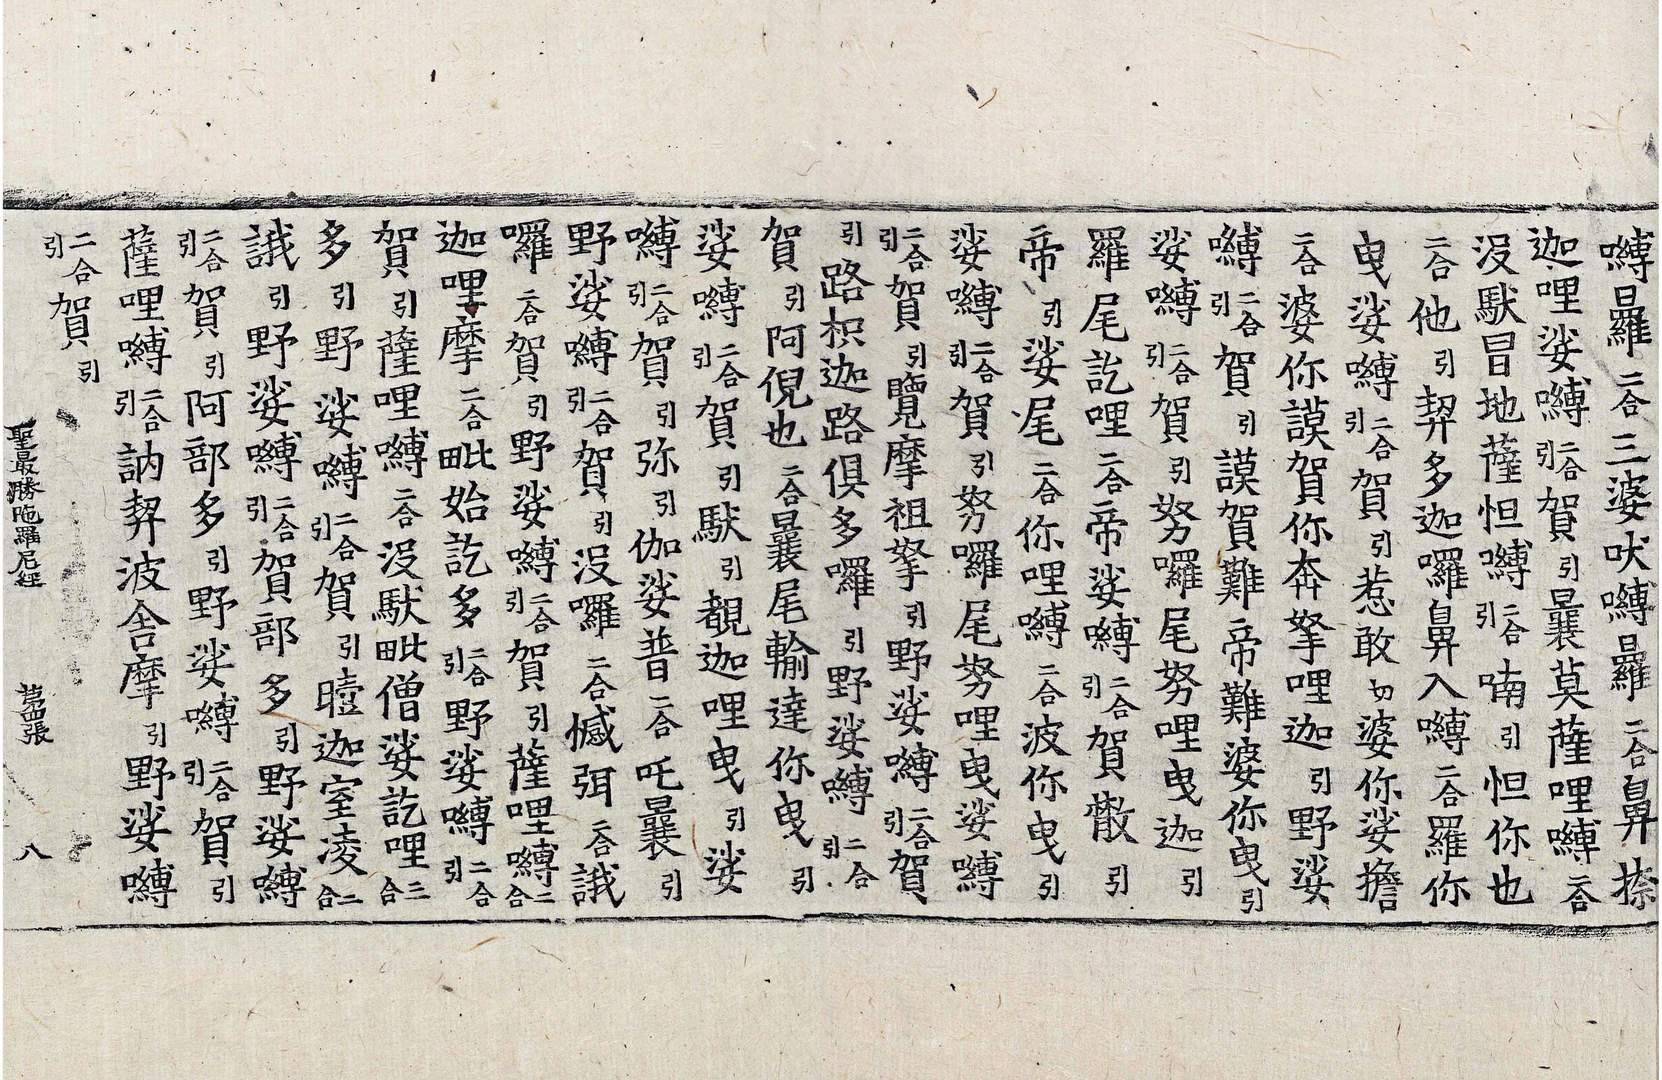 嚩囉二合三婆吠嚩囉二合鼻捺
迦哩娑嚩二合引賀引曩莫薩哩嚩二合
沒馱冒地薩怛嚩二合引喃引怛你也
二合他引契多迦囉鼻入嚩二合羅你
曳娑嚩二合引賀引惹敢切婆你娑擔
二合婆你謨賀你奔拏哩迦引野娑
嚩二合引賀引謨賀難帝難婆你曳引
娑嚩二合引賀引努囉尾努哩曳迦引
羅尾訖哩二合帝娑嚩二合引賀散引
帝引娑尾二合你哩嚩二合波你曳引
娑嚩二合引賀引努囉尾努哩曳娑嚩
二合引賀引覽摩祖拏引野娑嚩二合引賀
引路枳迦路俱多囉引野娑嚩二合引
賀引阿倪也二合曩尾輸達你曳引
娑嚩二合引賀引馱引覩迦哩曳引娑
嚩二合引賀引弥引伽娑普二合吒曩引
野娑嚩二合引賀引沒囉二合憾弭二合誐
囉二合賀引野娑嚩二合引賀引薩哩嚩二合
迦哩摩二合毗始訖多二合引野娑嚩二合引
賀引薩哩嚩二合沒馱毗僧娑訖哩二合
多引野娑嚩二合引賀引曀迦室凌二合
誐引野娑嚩二合引賀部多引野娑嚩
二合引賀引阿部多引野娑嚩二合引賀引
薩哩嚩二合引訥契波舎摩引野娑嚩
二合引賀引
聖最勝陁羅尼經 第四張 八